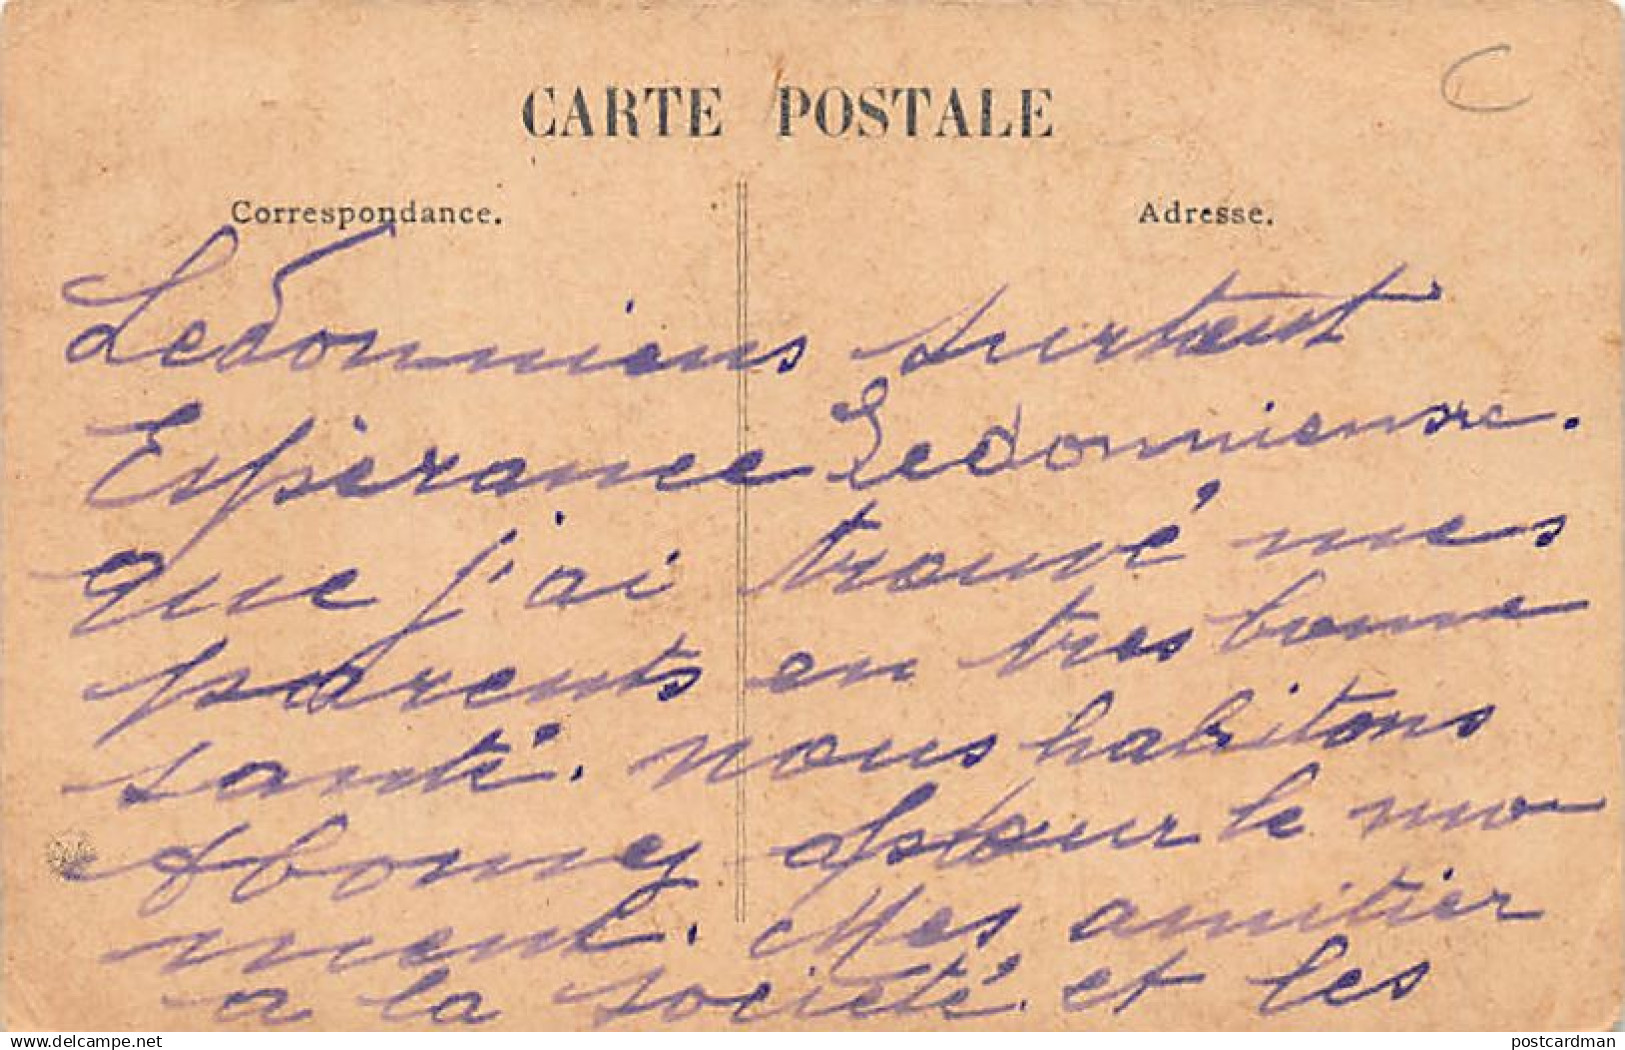 CARTE POSTALE
Correspondance. Adresse.
Ledonniens surtout
Espérance Ledonniensre.
que j'ai trouvé mes
parents en tres bonne
santé. nous habitons
Abomey pour le mo-
ment. Mes amitier
a la societé. et les
www.delcampe.net postcardman